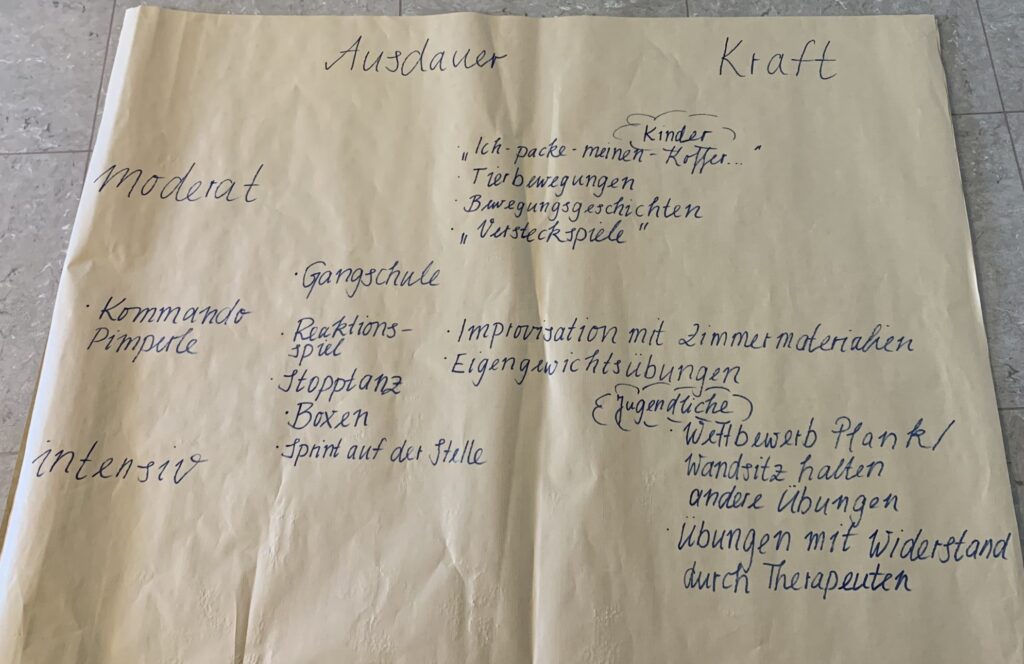 Ausdauer Kraft
Kinder
„Ich-packe-meinen-Koffer..."
· Tierbewegungen
· Bewegungsgeschichten
· „Versteckspiele"
moderat
· Gangschule
· Kommando
Pimperle
· Reaktions-
spiel
· Stopptanz
· Boxen
· Sprint auf der Stelle
intensiv
· Improvisation mit Zimmermaterialien
· Eigengewichtsübungen
Jugendliche
· Wettbewerb Plank/
Wandsitz halten
andere Übungen
· Übungen mit Widerstand
durch Therapeuten